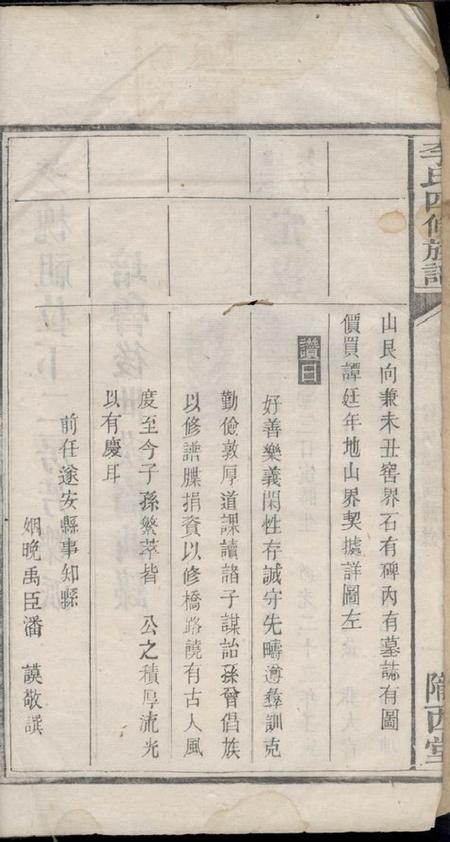 李氏四修族譜
隴西堂
山艮向兼未丑窖界石有碑內有墓誌有圖
價買譚廷年地山界契據詳圖左
讚曰
好善樂義閑性存誠守先疇遵彝訓克
勤儉敦厚道課讀諸子謀詒孫曾倡族
以修譜牒捐資以修橋路饒有古人風
度至今子孫繁萃皆 公之積厚流光
以有慶耳
前任遂安縣事知縣
姻晚禹臣潘 謨敬譔